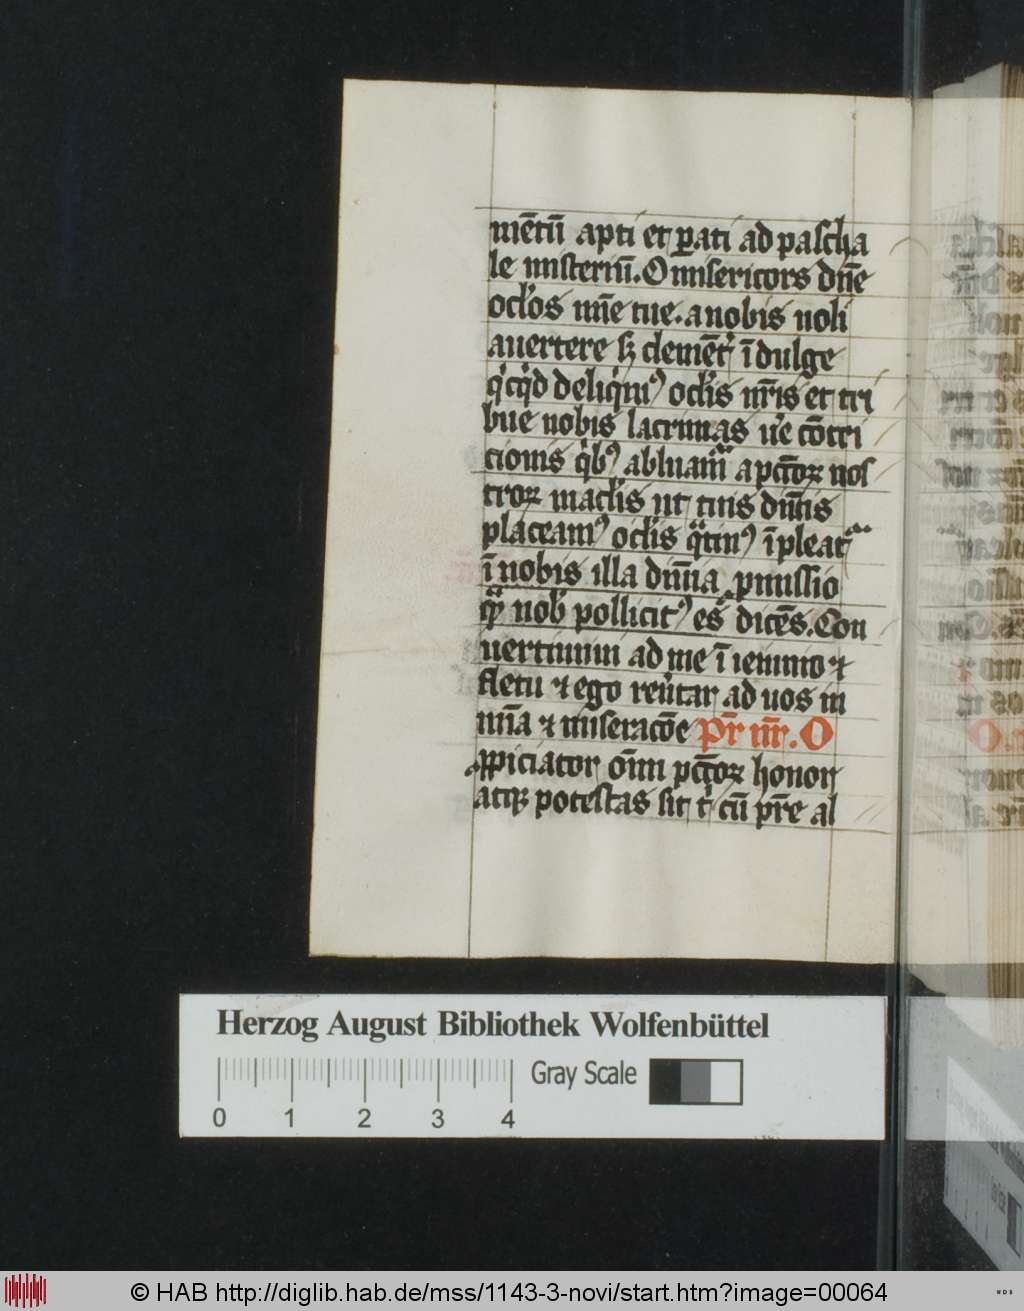 mētū apti et ꝑati ad pascha
le misteriū. O misericors dn̄e
ocl'os mīe tue. a nobis noli
auertere sꝫ clemēt' īdulge
q'cq'd deliq'm9 ocl'is nr̄is et tri
bue nobis lacrimas u'e cōtri
cionis q'b9 abluam9 a pctōꝝ nos
troꝝ macl'is ut tuis diuīs
placeam9 ocl'is q̄tin9 īpleat'
ī nobis illa diuīa ꝓmissio
qͣ nob' pollicit9 es dicēs. Con
uertimini ad me ī ieiunio ⁊
fletu ⁊ ego reu'tar ad uos in
mīa ⁊ miseracōe Pr̄ nr̄. O
ꝓpiciator oīm pctōꝝ honor
atqꝫ potestas sit t' cū pr̄e al
Herzog August Bibliothek Wolfenbüttel
Gray Scale
0 1 2 3 4
© HAB http://diglib.hab.de/mss/1143-3-novi/start.htm?image=00064